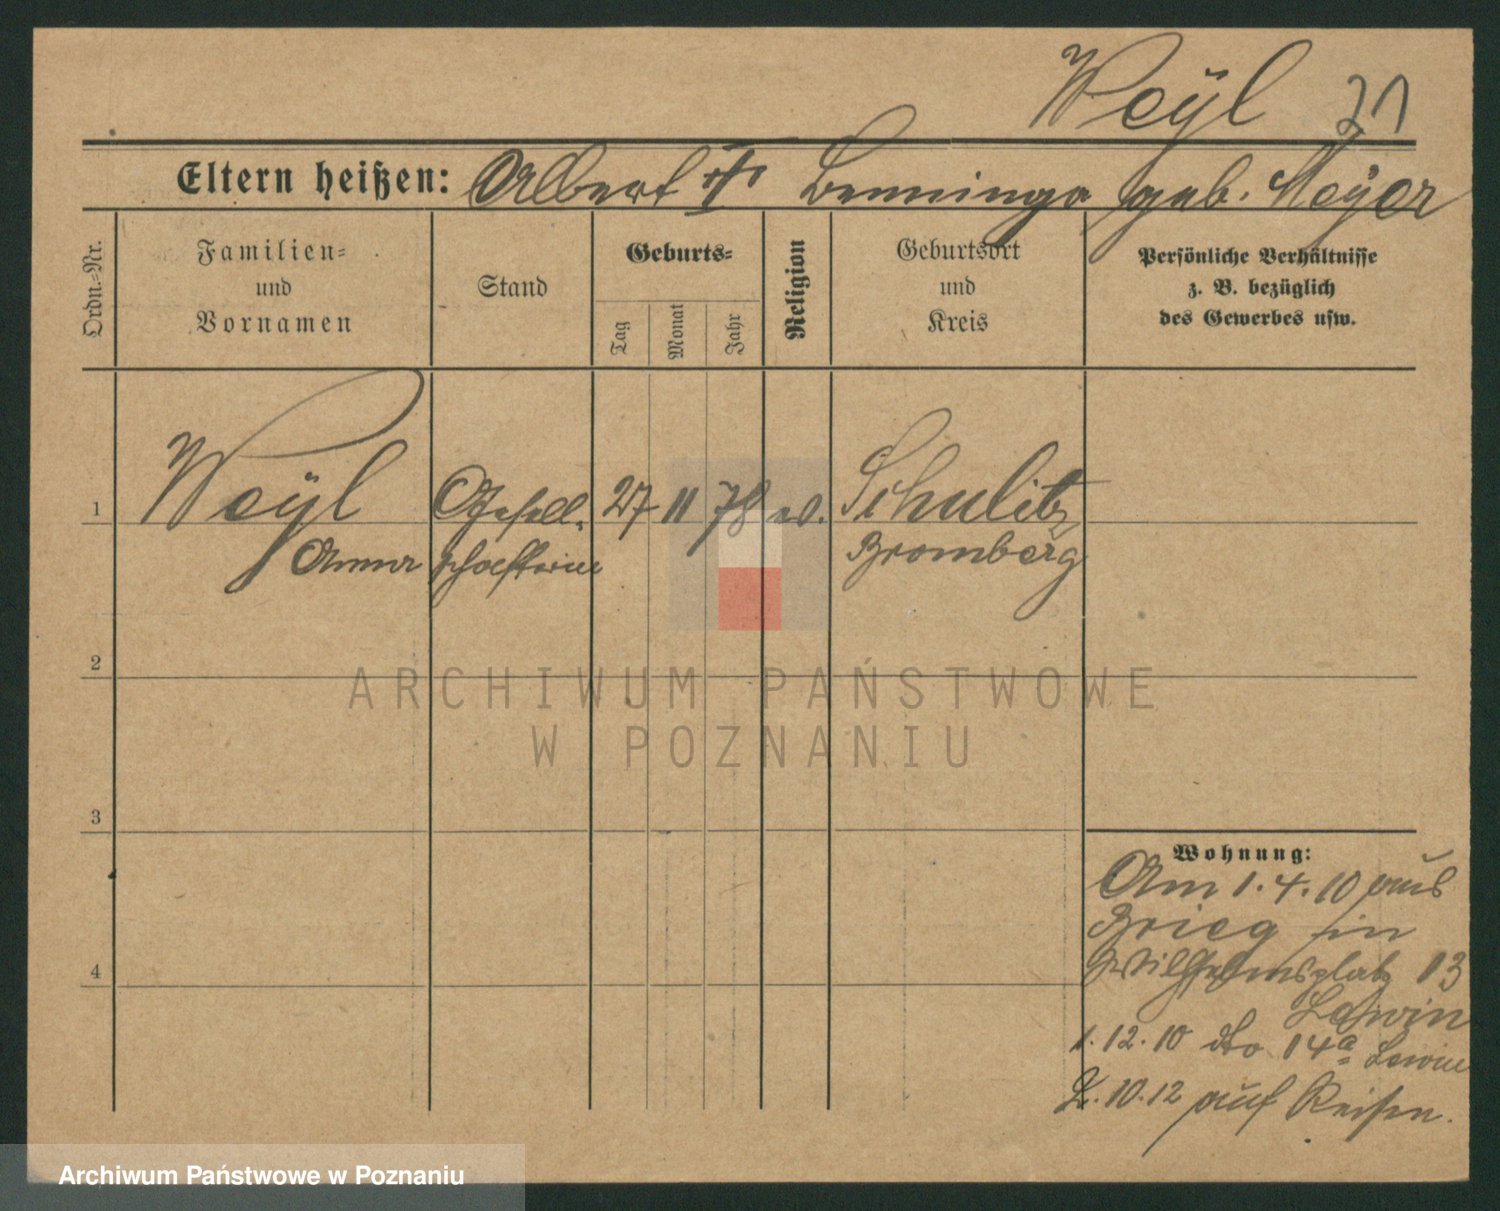 Weÿl 21
Eltern heißen: Albert geb. Meÿer
Ordn.-Nr.
Familien-
und
Vornamen
Stand
Geburts-
Tag
Monat
Jahr
Religion
Geburtsort
und
Kreis
Persönliche Verhältnisse
z. B. bezüglich
des Gewerbes usw.
1 Weÿl Gesell- 27 11 78 Schulitz
Anna schafterin Bromberg
2
ARCHIWUM PAŃSTWOWE
W POZNANIU
3
4
Wohnung:
Am 1.4.10 aus
Brieg in
Wilhelmsplatz 13
Lewin
1.12.10 dto 14a Lewin
2.10.12 auf Reisen.
Archiwum Państwowe w Poznaniu